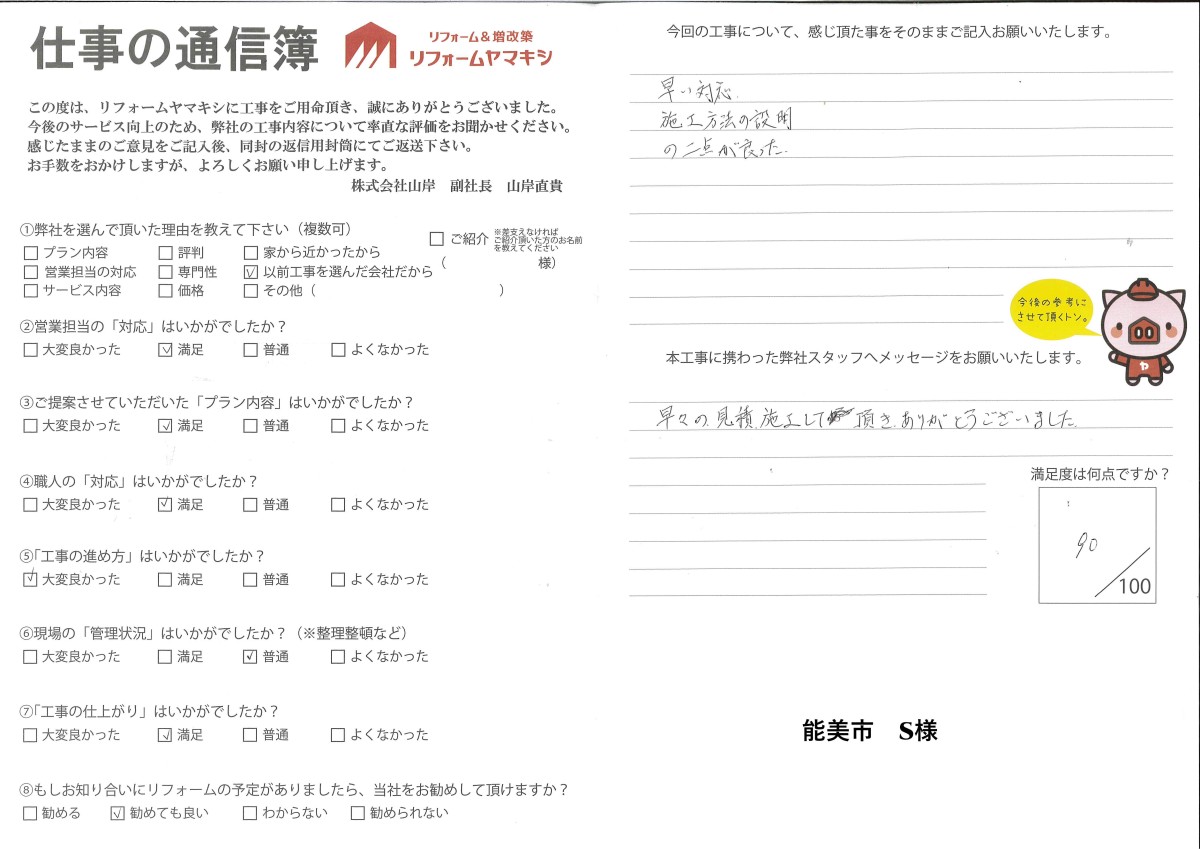 仕事の通信簿
リフォーム&増改築
リフォームヤマキシ
この度は、リフォームヤマキシに工事をご用命頂き、誠にありがとうございました。
今後のサービス向上のため、弊社の工事内容について率直な評価をお聞かせください。
感じたままのご意見をご記入後、同封の返信用封筒にてご返送下さい。
お手数をおかけしますが、よろしくお願い申し上げます。
株式会社山岸 副社長 山岸直貴
①弊社を選んで頂いた理由を教えて下さい（複数可）
□ プラン内容 □ 評判 □ 家から近かったから
□ 営業担当の対応 □ 専門性 ☑ 以前工事を選んだ会社だから
□ サービス内容 □ 価格 □ その他（ ）
□ ご紹介 ※差支えなければ
ご紹介頂いた方のお名前
を教えてください
（ 様）
②営業担当の「対応」はいかがでしたか？
□ 大変良かった ☑ 満足 □ 普通 □ よくなかった
③ご提案させていただいた「プラン内容」はいかがでしたか？
□ 大変良かった ☑ 満足 □ 普通 □ よくなかった
④職人の「対応」はいかがでしたか？
□ 大変良かった ☑ 満足 □ 普通 □ よくなかった
⑤「工事の進め方」はいかがでしたか？
☑ 大変良かった □ 満足 □ 普通 □ よくなかった
⑥現場の「管理状況」はいかがでしたか？（※整理整頓など）
□ 大変良かった □ 満足 ☑ 普通 □ よくなかった
⑦「工事の仕上がり」はいかがでしたか？
□ 大変良かった ☑ 満足 □ 普通 □ よくなかった
⑧もしお知り合いにリフォームの予定がありましたら、当社をお勧めして頂けますか？
□ 勧める ☑ 勧めても良い □ わからない □ 勧められない
今回の工事について、感じ頂た事をそのままご記入お願いいたします。
早い対応
施工方法の説明
の二点が良った
今後の参考に
させて頂くトン。
ヤ
本工事に携わった弊社スタッフへメッセージをお願いいたします。
早々の見積、施工して頂きありがとうございました
満足度は何点ですか？
90
100
能美市 S様